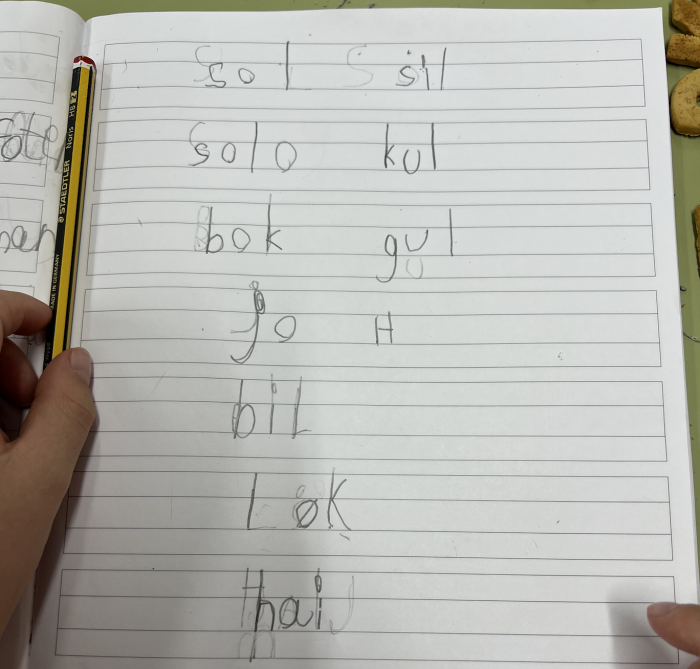 sol sil
solo kul
bok gul
jo H
bil
Løk
hai
STAEDTLER Noris HB 2
MADE IN GERMANY